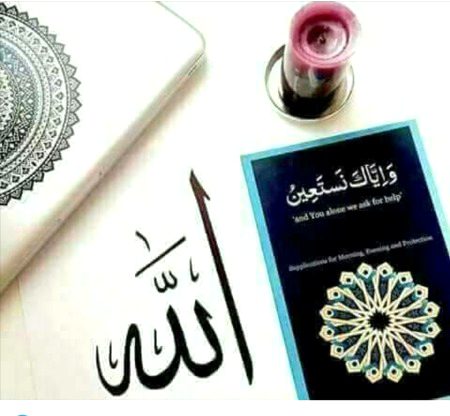 وَإِيَّاكَ نَسْتَعِينُ
'and You alone we ask for help'
Supplications for Morning, Evening and Protection
الله